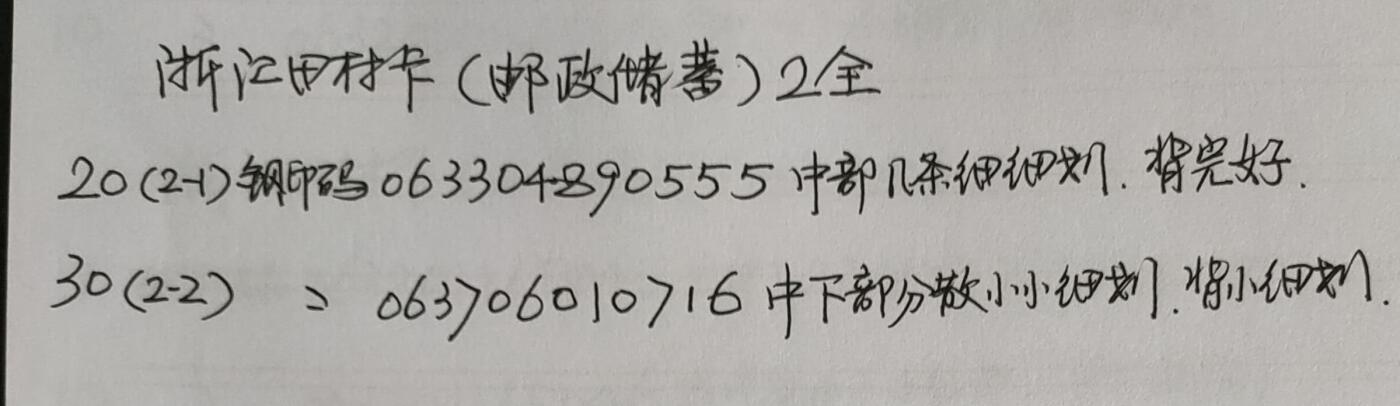 浙江田村卡(邮政储蓄)2全
20(2-1)钢印码063304890555中部几条细细划.背完好.
30(2-2) 〃 063706010716中下部分散小小细划.背小细划.